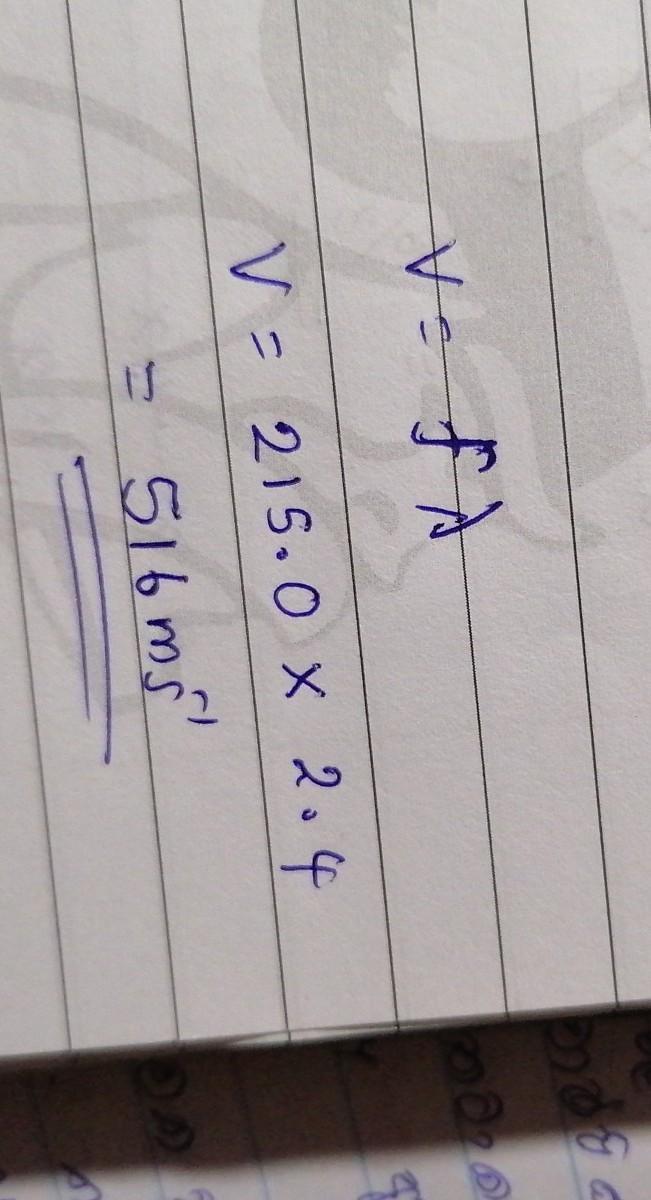 V = fλ
V = 215.0 × 2.4
= 516 ms⁻¹